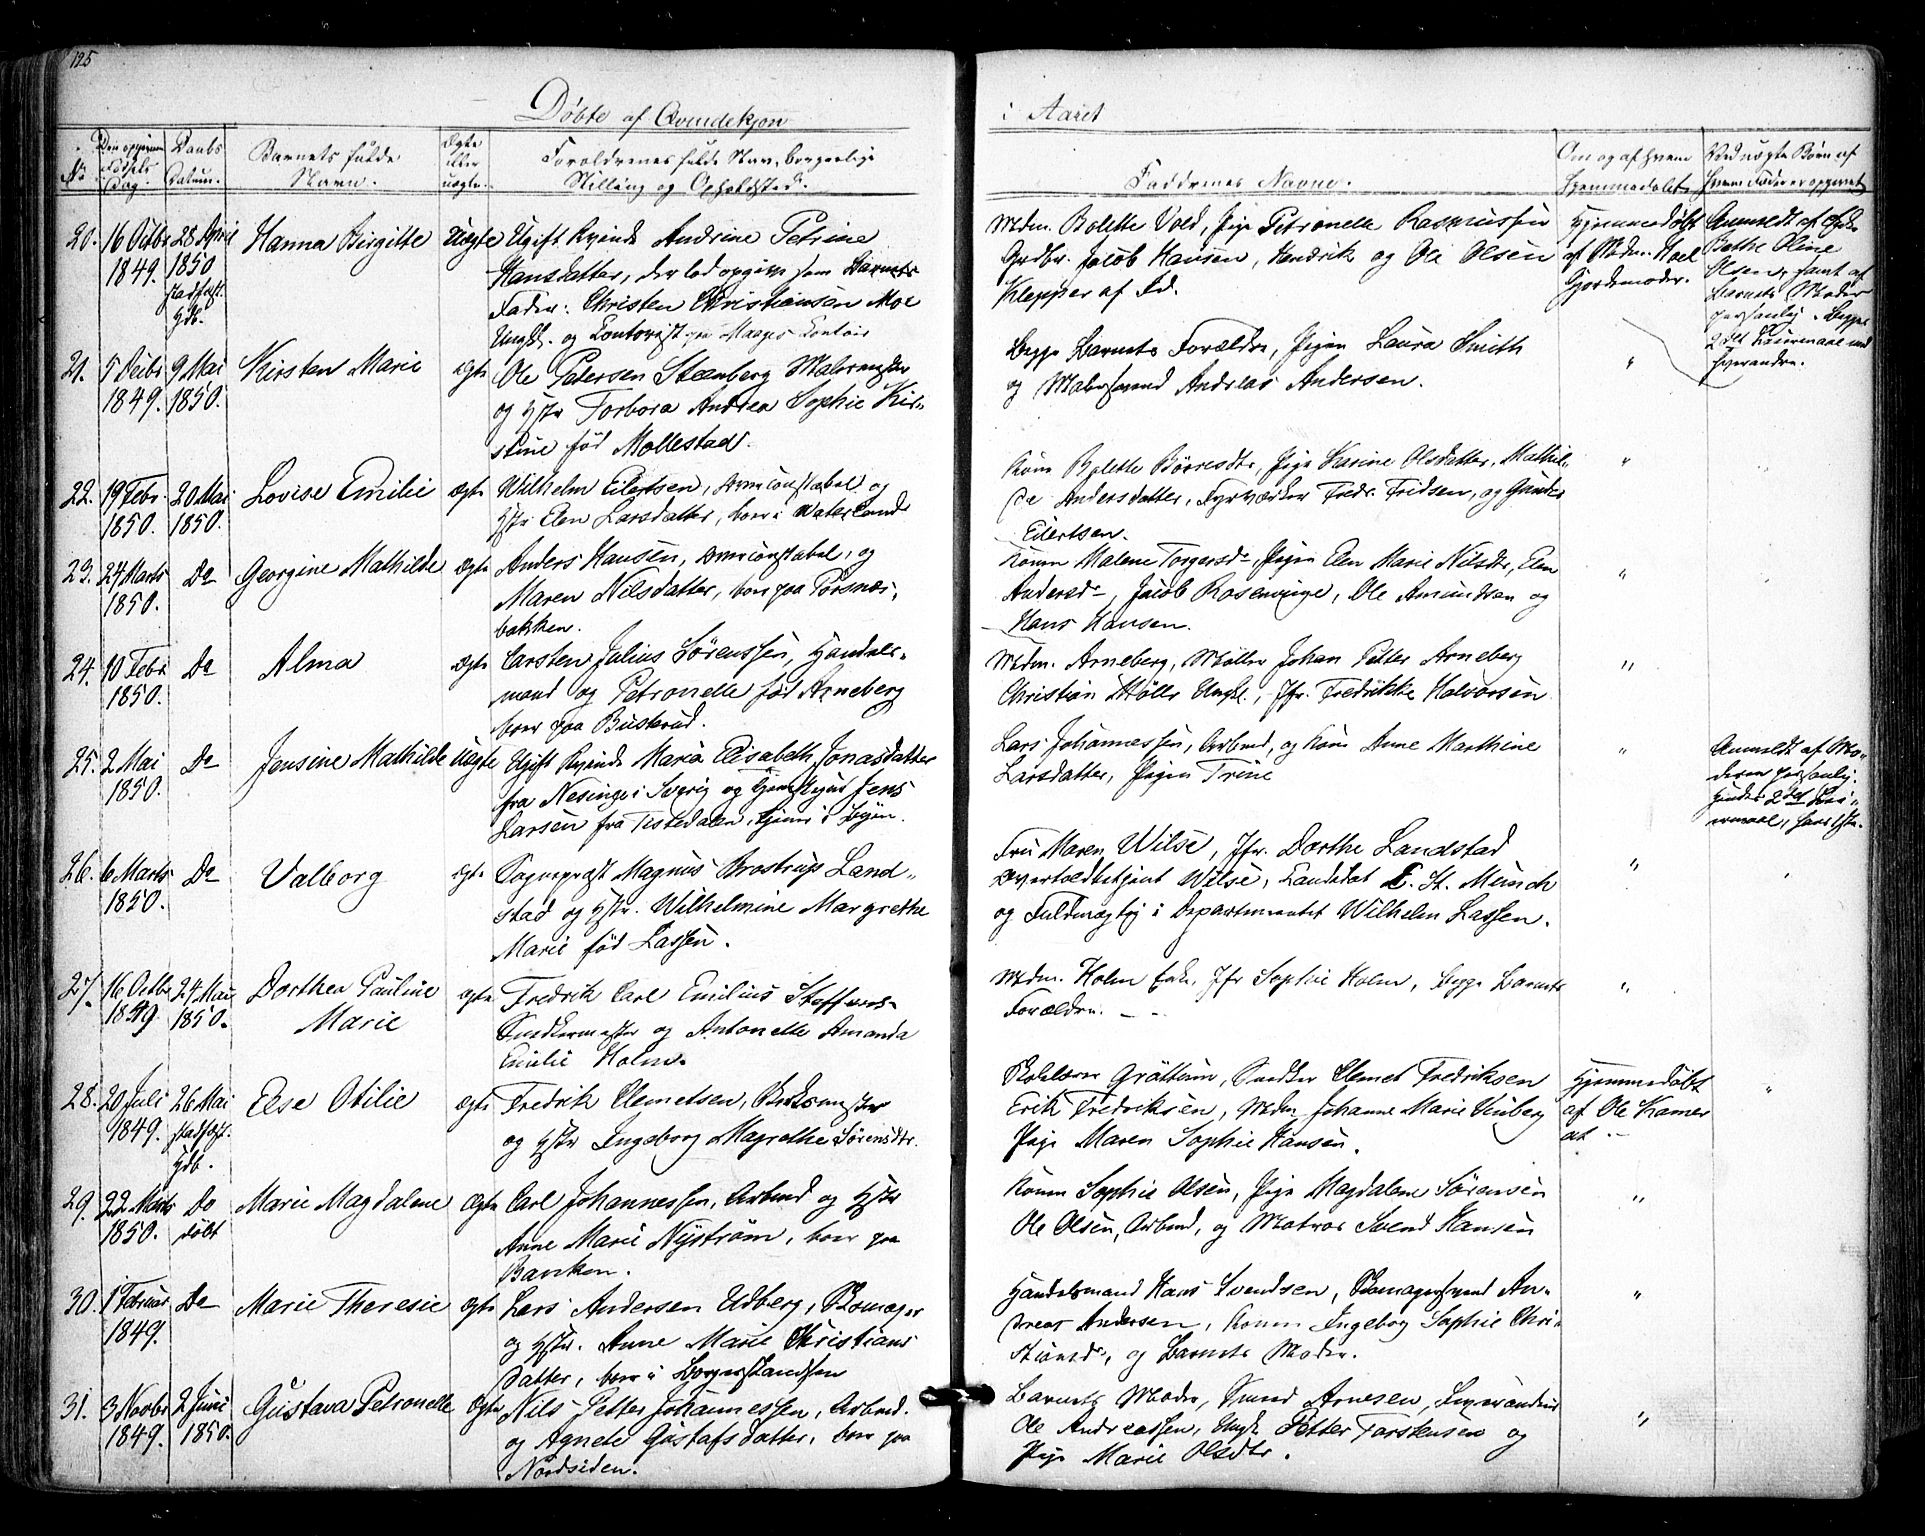 125
Døbte af Qvindekjøn
i Aaret
No
Den opgivne Fødsels Dag.
Daabs Datum.
Barnets fulde Navn.
Ægte eller uægte.
Forældrenes fulde Navn, borgerlige Stilling og Opholdsted.
Faddrenes Navne.
Om og af hvem hjemmedøbt.
Ved uægte Børn af hvem Fader er opgivet
20. 16 Octbr 1849. 28 April 1850 stadfæst. Hdb.
Hanna Birgitte
Uægte
Ugift Kvinde Andrine Petrine
Hansdatter, der lod opgive som Barnets
Fader: Christen Christiansen Moe
Ungk. og Contorist paa Maages Contoir
Mdm. Bolette Vold, Pige Petronelle Rasmussen
Grdbr. Jacob Hansen, Hendrik og Ole Olsen
Klepper af Fd.
Hjemmedøbt
af Mdm. Hoel
Gjordemoder.
Anmeldt af
Bathe Oline
Olsen, samt af
Barnets Moder
personlig. Begges
2det Leiermaal med
hverandre.
21. 5 Decbr 1849. 9 Mai 1850.
Kirsten Marie
ægte
Ole Petersen Steenberg Malermester
og Hstr Torbora Andrea Sophie Kir-
stine fød Mollestad.
Begge Barnets Forældre, Pigen Laura Smith
og Malersvend Andreas Andersen.
"
22. 19 Febr. 1850. 20 Mai 1850.
Lovise Emilie
ægte
Wilhelm Eilertsen, Arm:constabel og
Hstr Elen Larsdatter, boer i Waterland
Kone Bolette Børresdtr, Pige Karine Olsdatter, Mathil-
de Andersdatter, Fyrværker Fredr. Fridsen, og Gunder
Eilertsen.
"
23. 24 Marts 1850. Do
Georgine Mathilde
ægte
Anders Hansen, Arm:constabel, og
Maren Nilsdatter, boer paa Persnæs-
bakken.
Konen Malene Torgersdr, Pigen Elen Marie Nilsdtr, Elen
Andersdr, Jacob Rosenvinge, Ole Amundsen og
Hans Hansen.
"
24. 10 Febr 1850. Do
Alma
ægte
Carsten Julius Sørenssen, Handels-
mand og Petronelle fød Arneberg
boer paa Buskerud.
Mdm. Arneberg, Møller Johan Petter Arneberg
Christian Møller Ungk., Jfr. Fredrikke Halvorsen
"
25. 2 Mai 1850. Do
Jensine Mathilde
Uægte
Ugift Kvinde Maria Elisabeth Jonasdatter
fra Nesinge i Sverig og Jens
Larsen fra Tistedalen, tjener i Byen.
Lars Johannessen, Arbmd, og Kone Anne Marthine
Larsdatter, Pigen Trine
"
Anmeldt af Mo-
deren personlig.
Hendes 2det Lei-
ermaal, hans 1ste.
26. 6 Marts 1850. Do
Valborg
ægte
Sognepræst Magnus Brostrup Land-
stad og Hstr. Wilhelmine Margrethe
Marie fød Lassen.
Fru Maren Wilse, Jfr. Dorthe Landstad
Overtoldbetjent Wilse, Candidat E. St. Münch
og Fuldmægtig i Departementet Wilhelm Lassen.
"
27. 16 Octbr 1849 24 Mai 1850.
Dorthea Pauline
Marie
ægte
Fredrik Carl Emilius Steffens-
Snedkermester og Antonette Amanda
Emilie Holm.
Mdm. Holm Enke, Jfr Sophie Holm, begge Barnets
Forældre.
"
28. 20 Juli 1849. 26 Mai stadfæst. Hdb.
Else Otilie
ægte
Fredrik Clemetsen,
og Hstr Ingeborg Magrethe Sørensdtr.
Skolelærer Grøttum, Snedker Clemet Fredriksen
Erik Fredriksen, Mdm Johanne Marie
Pige Maren Sophie Hansen.
Hjemmedøbt
af Ole Kamer
at
"
29. 22 Marts 1850. Do døbt
Marie Magdalene
ægte
Carl Johannessen, Arbmd og Hstr
Anne Marie Nyström, boer paa
Banken.
Konen Sophie Olsen, Pige Magdalene Sørensen
Ole Olsen, Arbmd, og Matros Svend Hansen
"
30. 1 Februar 1849. Do
Marie Theresie
ægte
Lars Andersen Udberg, Skomager
og Hstr. Anne Marie Christians
datter, boer i Borgerskandsen
Handelsmand Hans Svendsen, Skomagersvend An-
dreas Andersen, Konen Ingeborg Sophie Chri-
stiansdr, og Barnets Moder.
"
31. 3 Novbr 1849. 2 Juni 1850.
Gustava Petronelle
ægte
Nils Petter Johannessen, Arbmd.
og Agnete Gustafsdatter, boer paa
Nordsiden.
Barnets Moder, Knud Arnesen,
Ole Andreassen, Ungk Petter Torstensen og
Pige Marie Olsdtr.
"